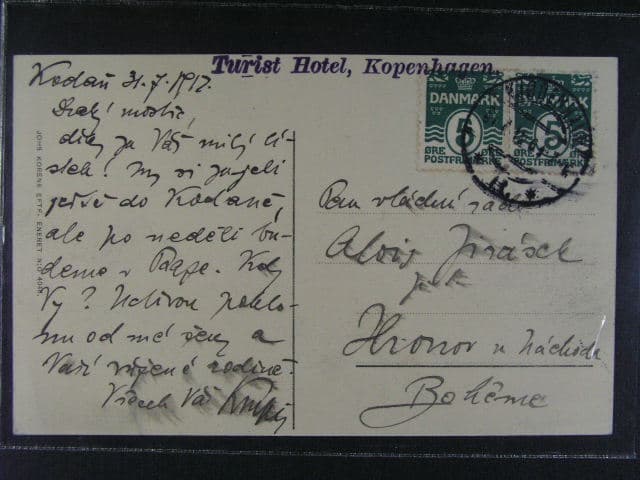 Turist Hotel, Kopenhagen.
Kodaň 31.7.1912.
Drahý mistře,
díky za Váš milý lí-
stek! My si zajeli
ještě do Kodaně,
ale po neděli bu-
deme v Praze. Kdy
Vy? Uctivou poklo-
nu od mé ženy a
Vaší vzácné rodině.
Všech Váš
JOHS. KORENS EFTF. ENERET. N:O
DANMARK
5
ØRE
POSTFRIMÆRK
DANMARK
5
ØRE
POSTFRIMÆRK
Pan vládní rada
Alois Jirásek
Hronov u Náchoda
Bohême